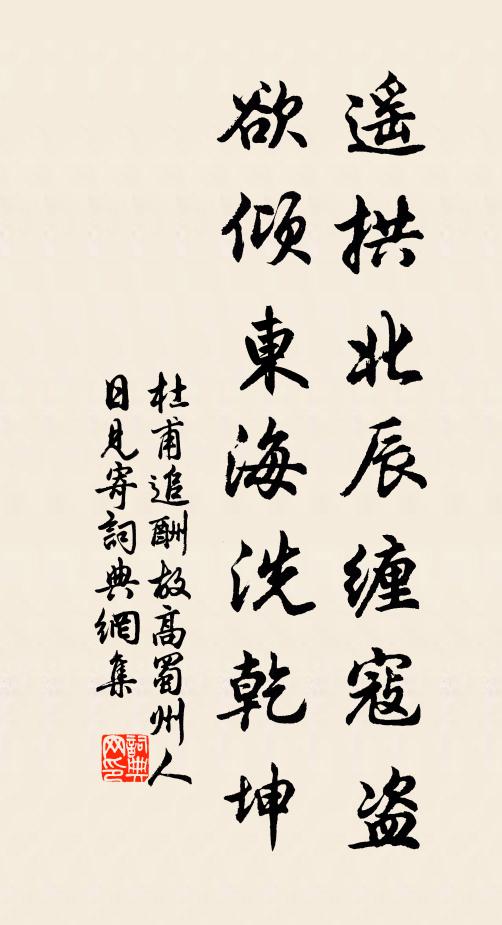 遥拱北辰缠寇盗
欲倾東海洗乾坤
杜甫追酬故高蜀州人
日見寄詞典網集
詞典
网印